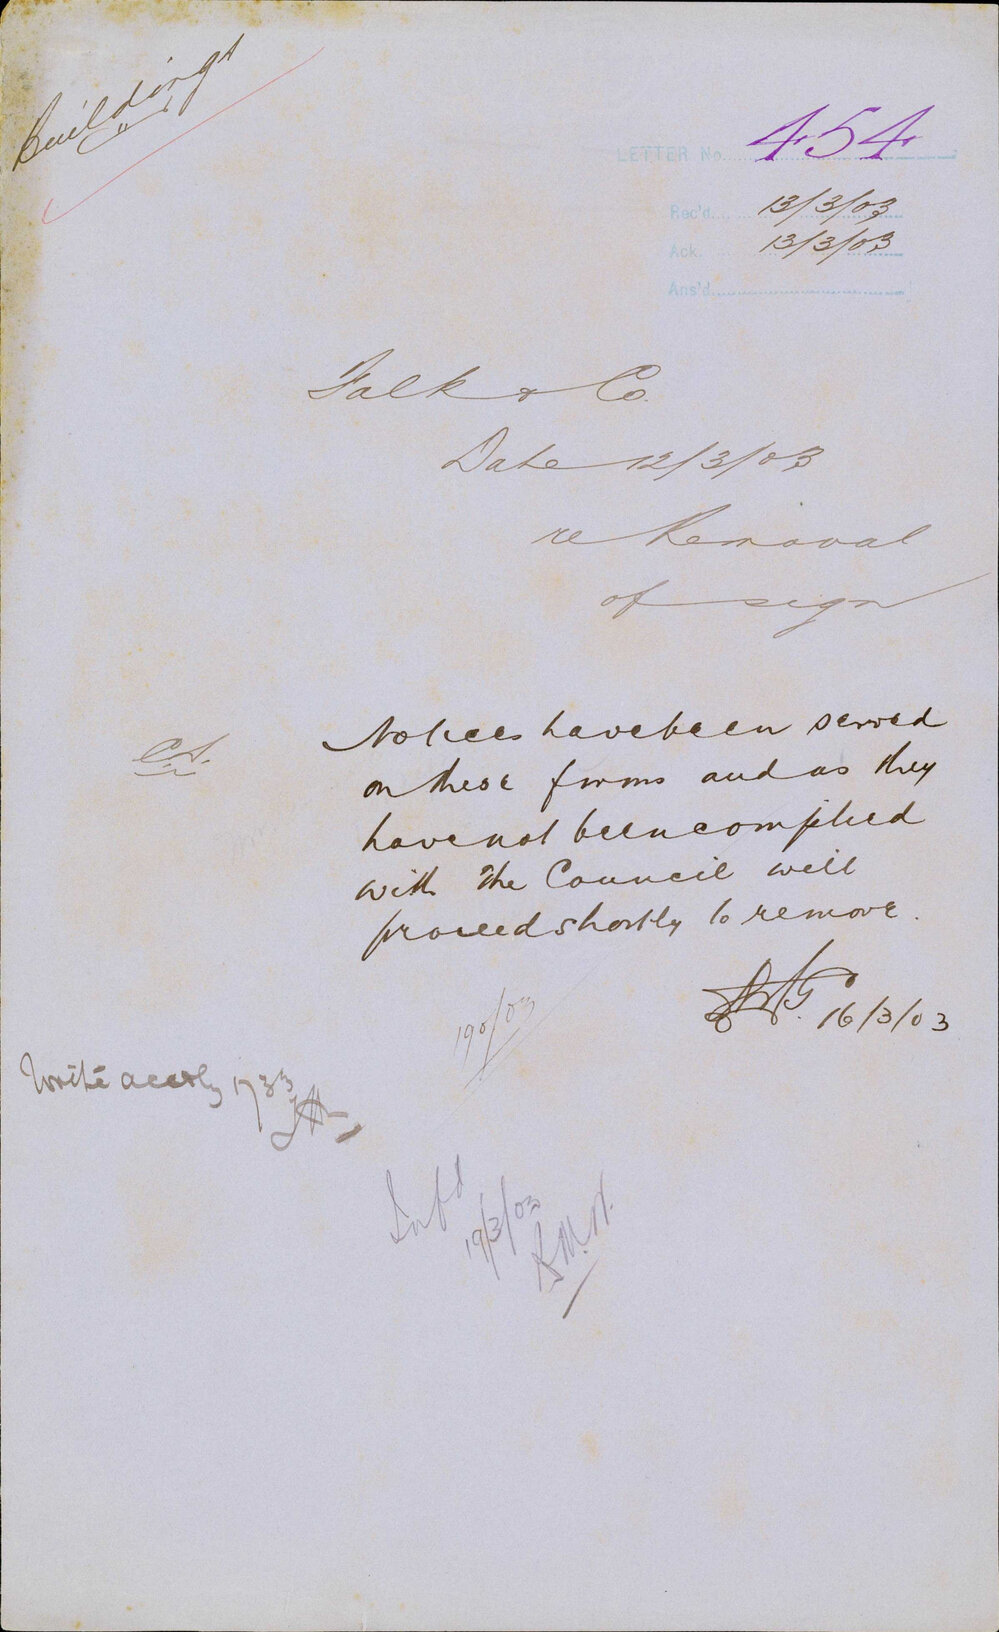 Buildings
LETTER No. 454
Rec'd. 13/3/03
Ack. 13/3/03
Ans'd.
Falk & Co.
Date 12/3/03
re Removal
of sign
C.S.
Notices have been served
on these firms and as they
have not been complied
with the Council will
proceed shortly to remove.
16/3/03
190/03
Write accdly 17 3 3
19/3/03